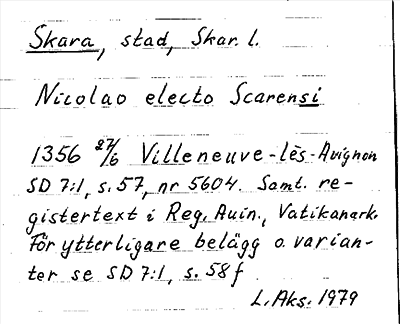 Skara, stad, Skar. l.
Nicolao electo Scarensi
1356 27/6 Villeneuve-lès-Avignon
SD 7:1, s. 57, nr 5604. Samt. re-
gistertext i Reg. Auin., Vatikanark.
För ytterligare belägg o. varian-
ter se SD 7:1, s. 58 f
L. Aks. 1979